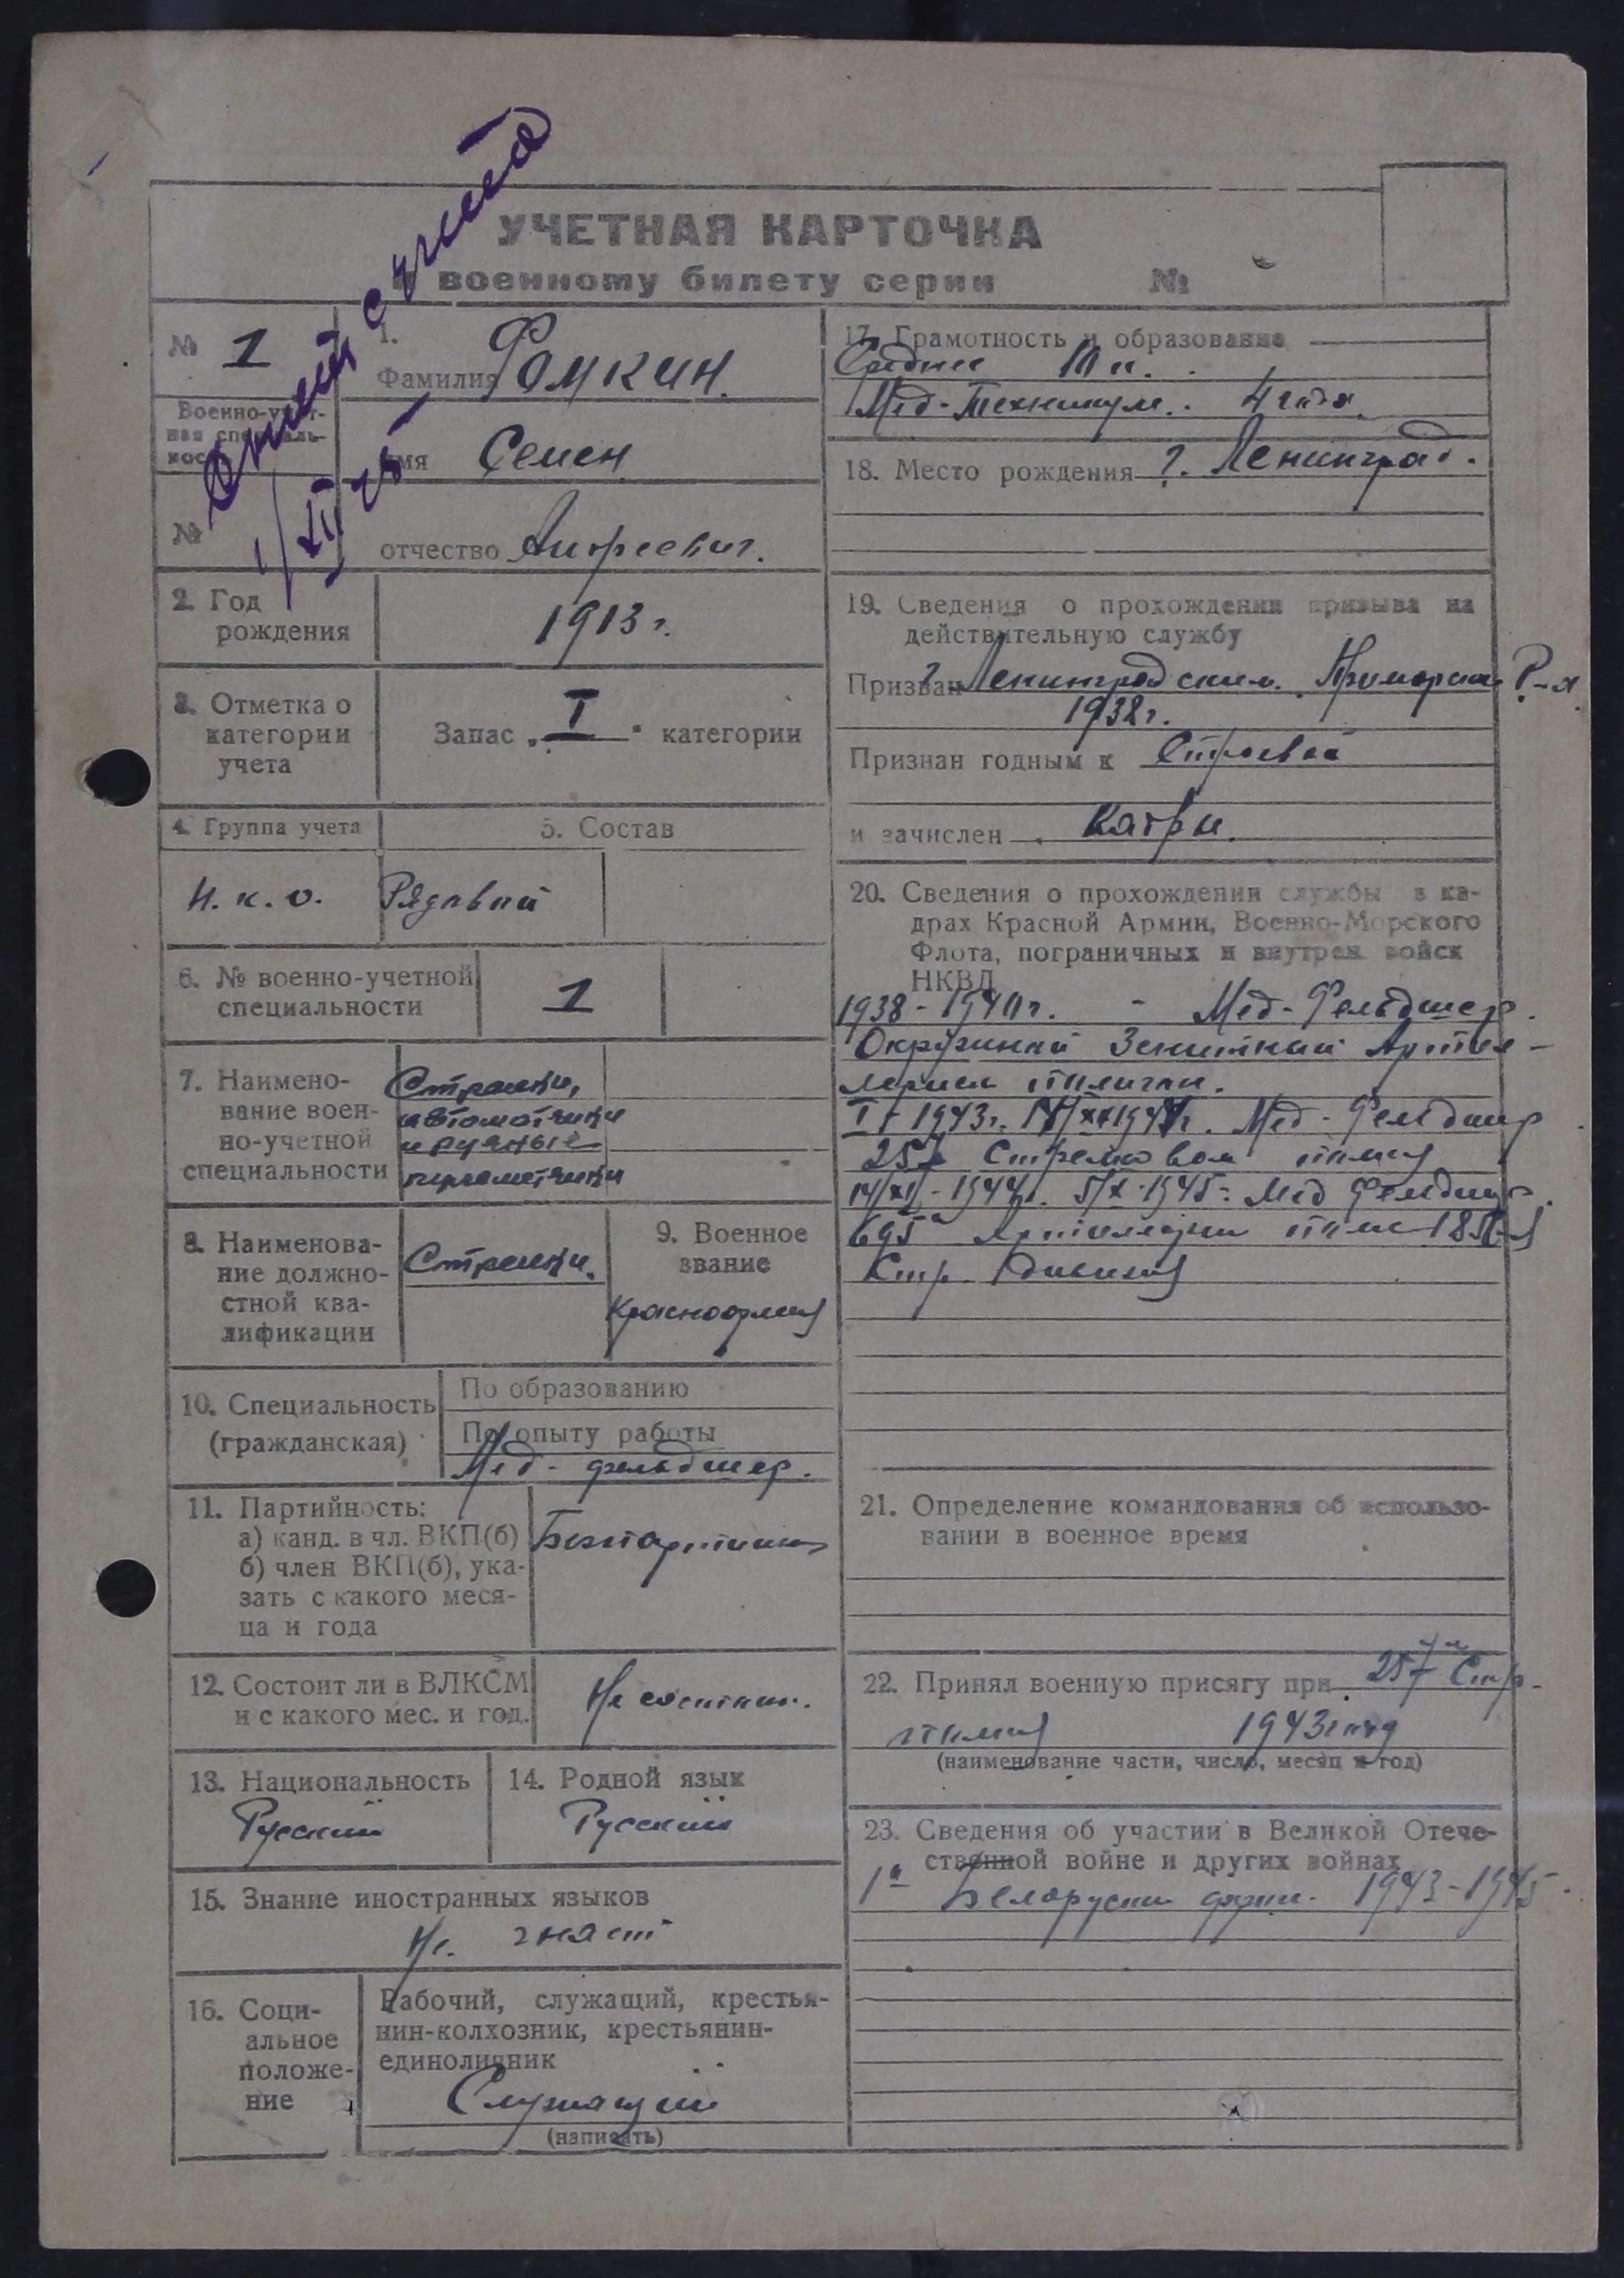 Снят с учета
1/XII 25
УЧЕТНАЯ КАРТОЧКА
к военному билету серии №
№ 1
Военно-учет-
ная специаль-
ность
№
1.
Фамилия Фомкин.
имя Семен
отчество Андреевич.
2. Год
рождения
1913 г.
3. Отметка о
категории
учета
Запас „I“ категории
4. Группа учета
Н.К.О.
5. Состав
Рядовой
6. № военно-учетной
специальности
1
7. Наимено-
вание воен-
но-учетной
специальности
Стрелки,
автоматчики
и ручные
пулеметчики
8. Наименова-
ние должно-
стной ква-
лификации
Стрелки.
9. Военное
звание
Красноармеец
10. Специальность
(гражданская)
По образованию
По опыту работы
Мед-фельдшер.
11. Партийность:
а) канд. в чл. ВКП(б)
б) член ВКП(б), ука-
зать с какого меся-
ца и года
Беспартийный
12. Состоит ли в ВЛКСМ
и с какого мес. и год.
Не состоит.
13. Национальность
Русский
14. Родной язык
Русский
15. Знание иностранных языков
Не знает
16. Соци-
альное
положе-
ние
Рабочий, служащий, крестья-
нин-колхозник, крестьянин-
единоличник
Служащий
(написать)
17. Грамотность и образование
Среднее
Мед-Техникум. 4 года
18. Место рождения г. Ленинград.
19. Сведения о прохождении призыва на
действительную службу
Призван Ленинградским Приморским Р-н
1938 г.
Признан годным к Строевой
и зачислен Кадры.
20. Сведения о прохождении службы в ка-
драх Красной Армии, Военно-Морского
Флота, пограничных и внутрен. войск
НКВД
1938-1940 г. - Мед-Фельдшер.
Окружной Зенитный Артил-
лерии
1943 г. Мед-Фельдшер
257 Стрелковом полку
14/XI-1944 г. 5/X-1945 г. Мед Фельдшер
695 Артиллерии полк 185
Стр. Дивизии
21. Определение командования об использо-
вании в военное время
22. Принял военную присягу при 257 Стр.
полку 1943 год
(наименование части, число, месяц и год)
23. Сведения об участии в Великой Отече-
ственной войне и других войнах
1й Белорусск фрон. 1943-1945.